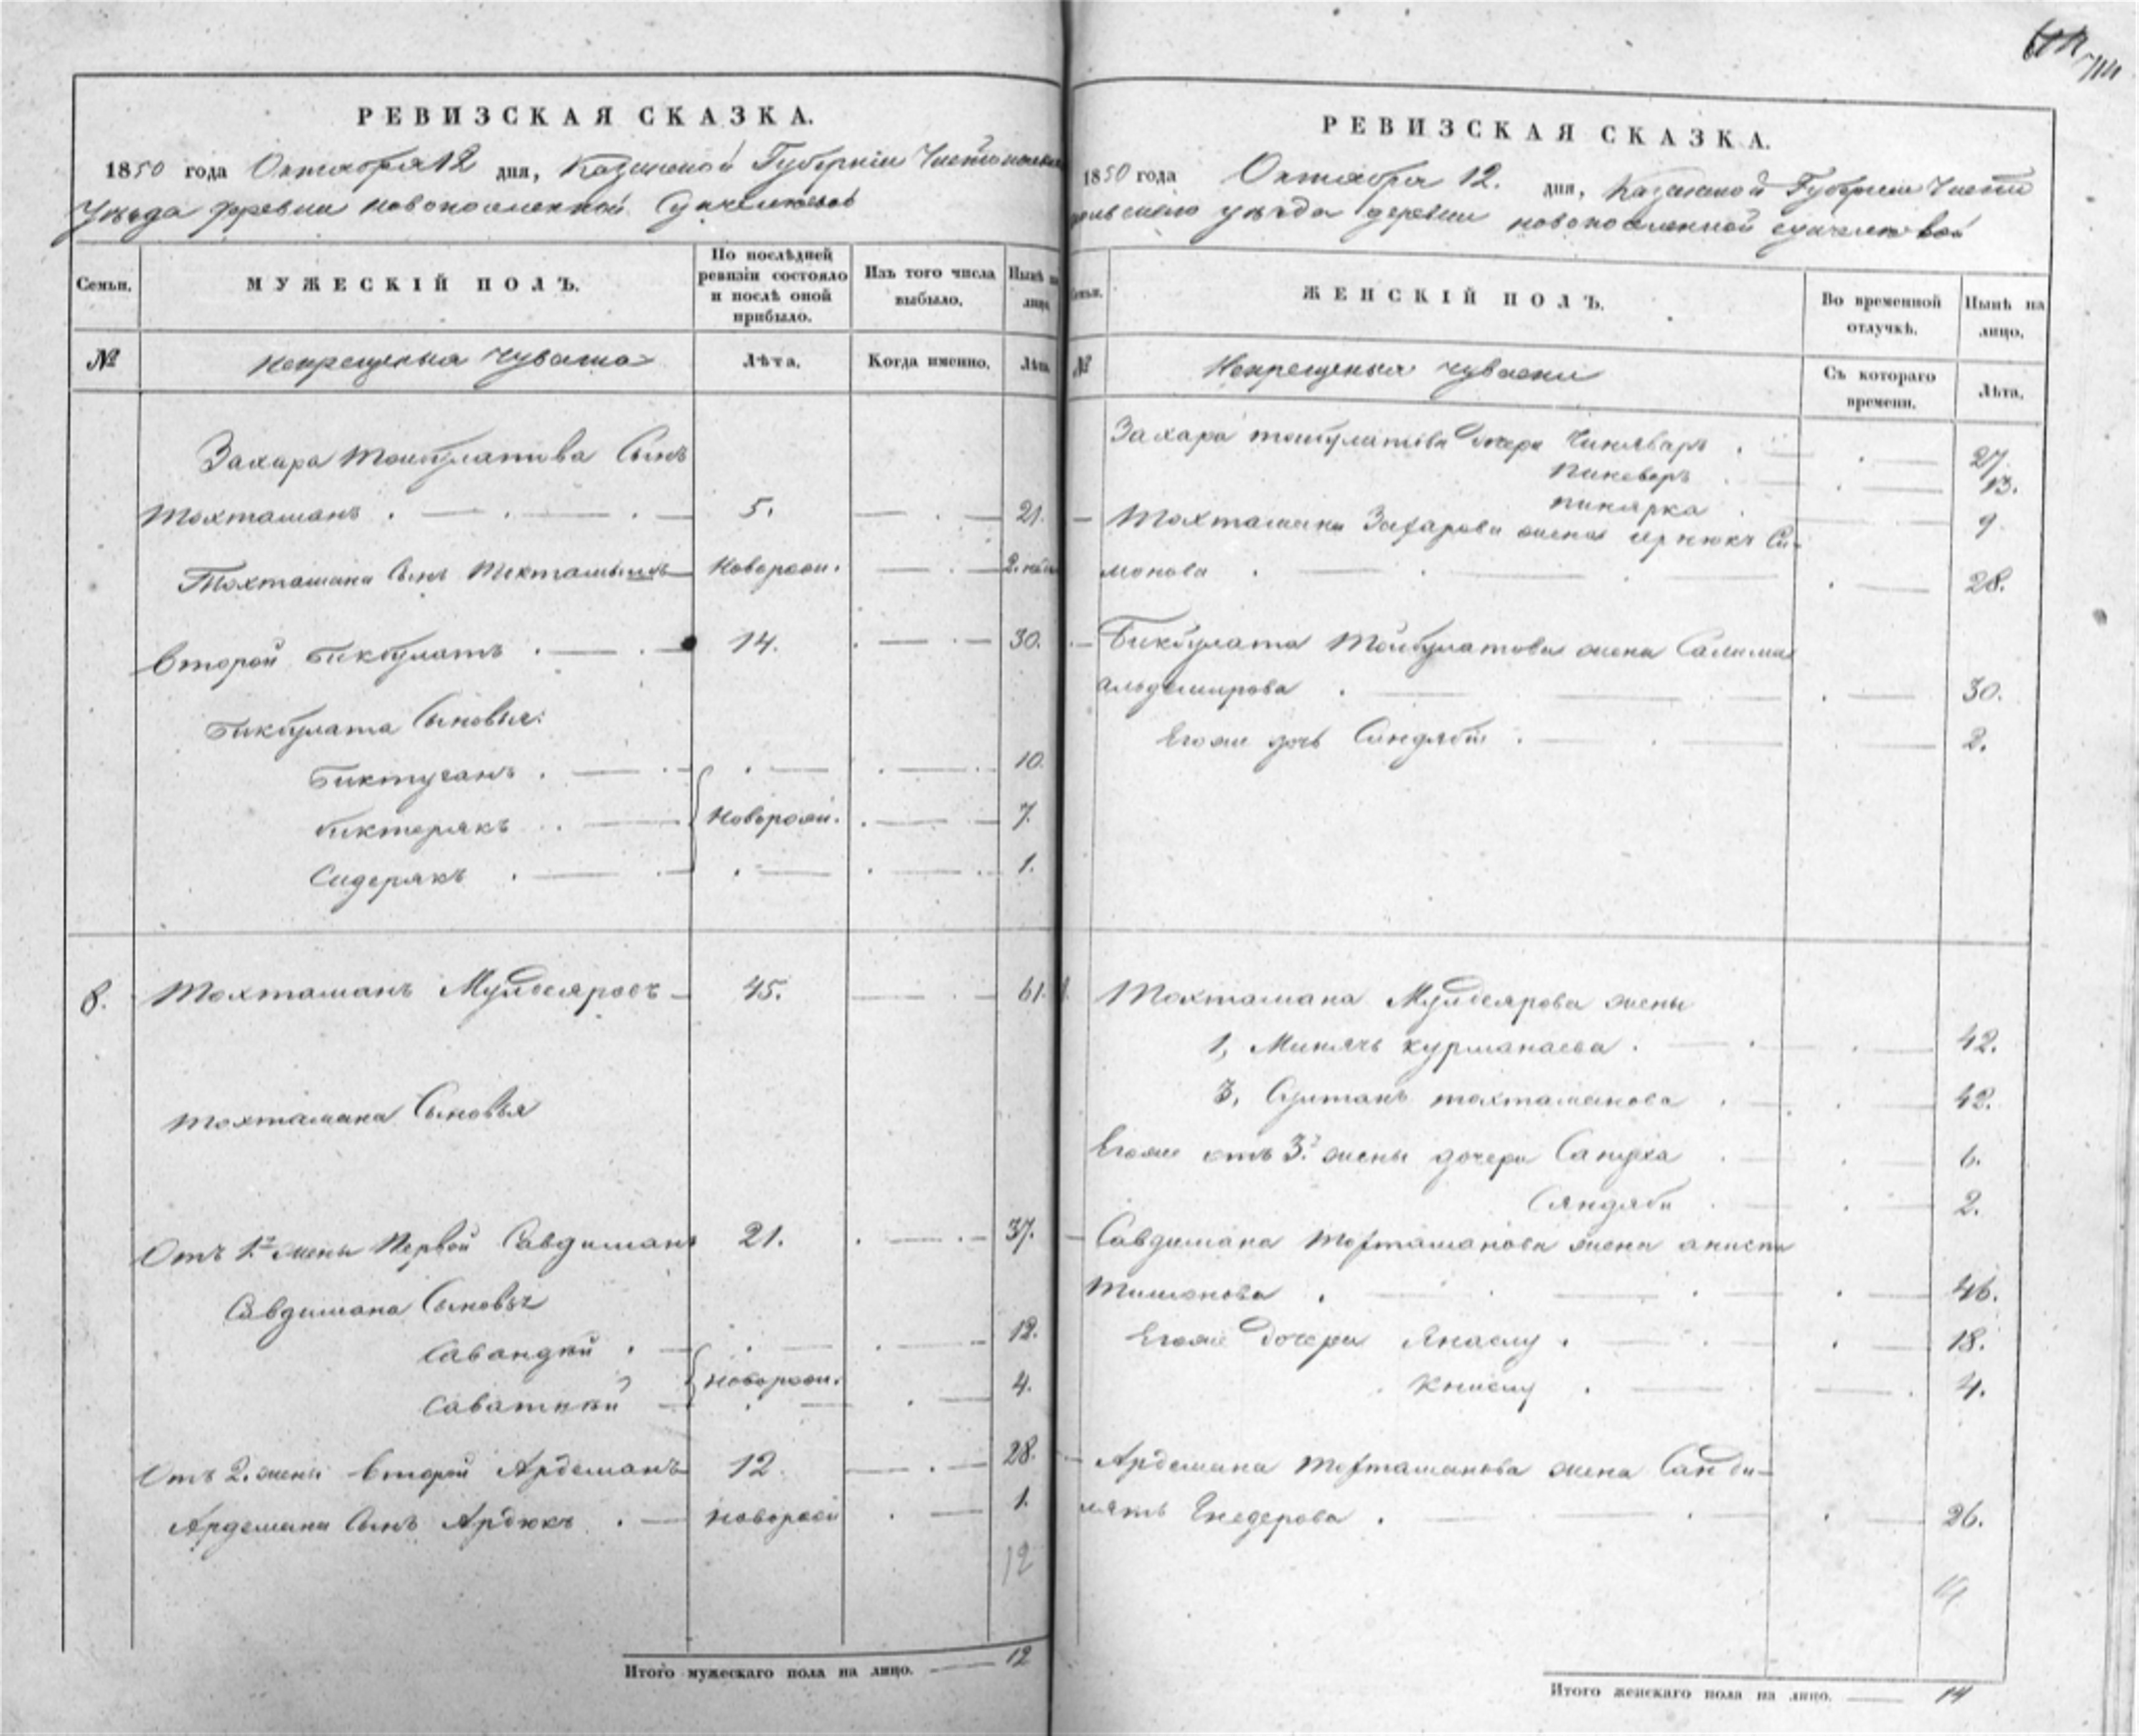 РЕВИЗСКАЯ СКАЗКА.
1850 года Октября 12 дня, Казанской Губерніи Чистопольскаго
Уѣзда деревни новопоселенной
Семьи.
МУЖЕСКІЙ ПОЛЪ.
По послѣдней ревизіи состояло и послѣ оной прибыло.
Изъ того числа выбыло.
Нынѣ на лицо.
№
Некрещеныя Чуваша
Лѣта.
Когда именно.
Лѣта.
Захара Тойбулатова Сынъ
Тохтаманъ 5. 21.
Тохтамана Сынъ Новорож. 2. нед.
Второй Бикбулатъ 14. 30.
Бикбулата Сыновья:
Биктуганъ 10.
Биктерякъ Новорож. 7.
Сидерякъ 1.
8. Тохтаманъ Мулдеяровъ 45. 61.
Тохтамана Сыновья
Отъ 1й жены Первой Савдиманъ 21. 37.
Савдимана Сыновья
Савандѣй 12.
Саваткѣй Новорож. 4.
Отъ 2. жены второй Ардеманъ 12. 28.
Ардемана Сынъ Ардюкъ Новорож 1.
12
Итого мужескаго пола на лицо. 12
РЕВИЗСКАЯ СКАЗКА.
1850 года Октября 12. дня, Казанской Губерніи Чисто
польскаго уѣзда деревни новопоселенной
Семьи.
ЖЕНСКІЙ ПОЛЪ.
Во временной отлучкѣ.
Нынѣ на лицо.
№
Некрещеныя чувашки
Съ котораго времени.
Лѣта.
Захара тойбулатова дочери Чиняваръ 27.
Пиневеръ 13.
пинярка 9.
Тохтамана Захарова жена Си-
монова 28.
Бикбулата Тойбулатова жена Салима
альдемирова 30.
Егоже дочь Синдяби 2.
Тохтамана Мулдеярова жены
1, Минячь курманаева 42.
3, Султанъ тохтаманова 42.
Егоже отъ 3й жены дочери 6.
Сяндяби 2.
Савдимана Тохтаманова жена
Тимонова 46.
Егоже Дочери Янаслу 18.
Книслу 4.
Ардемана Тохтаманова жена
Енедерова 26.
14
Итого женскаго пола на лицо. 14